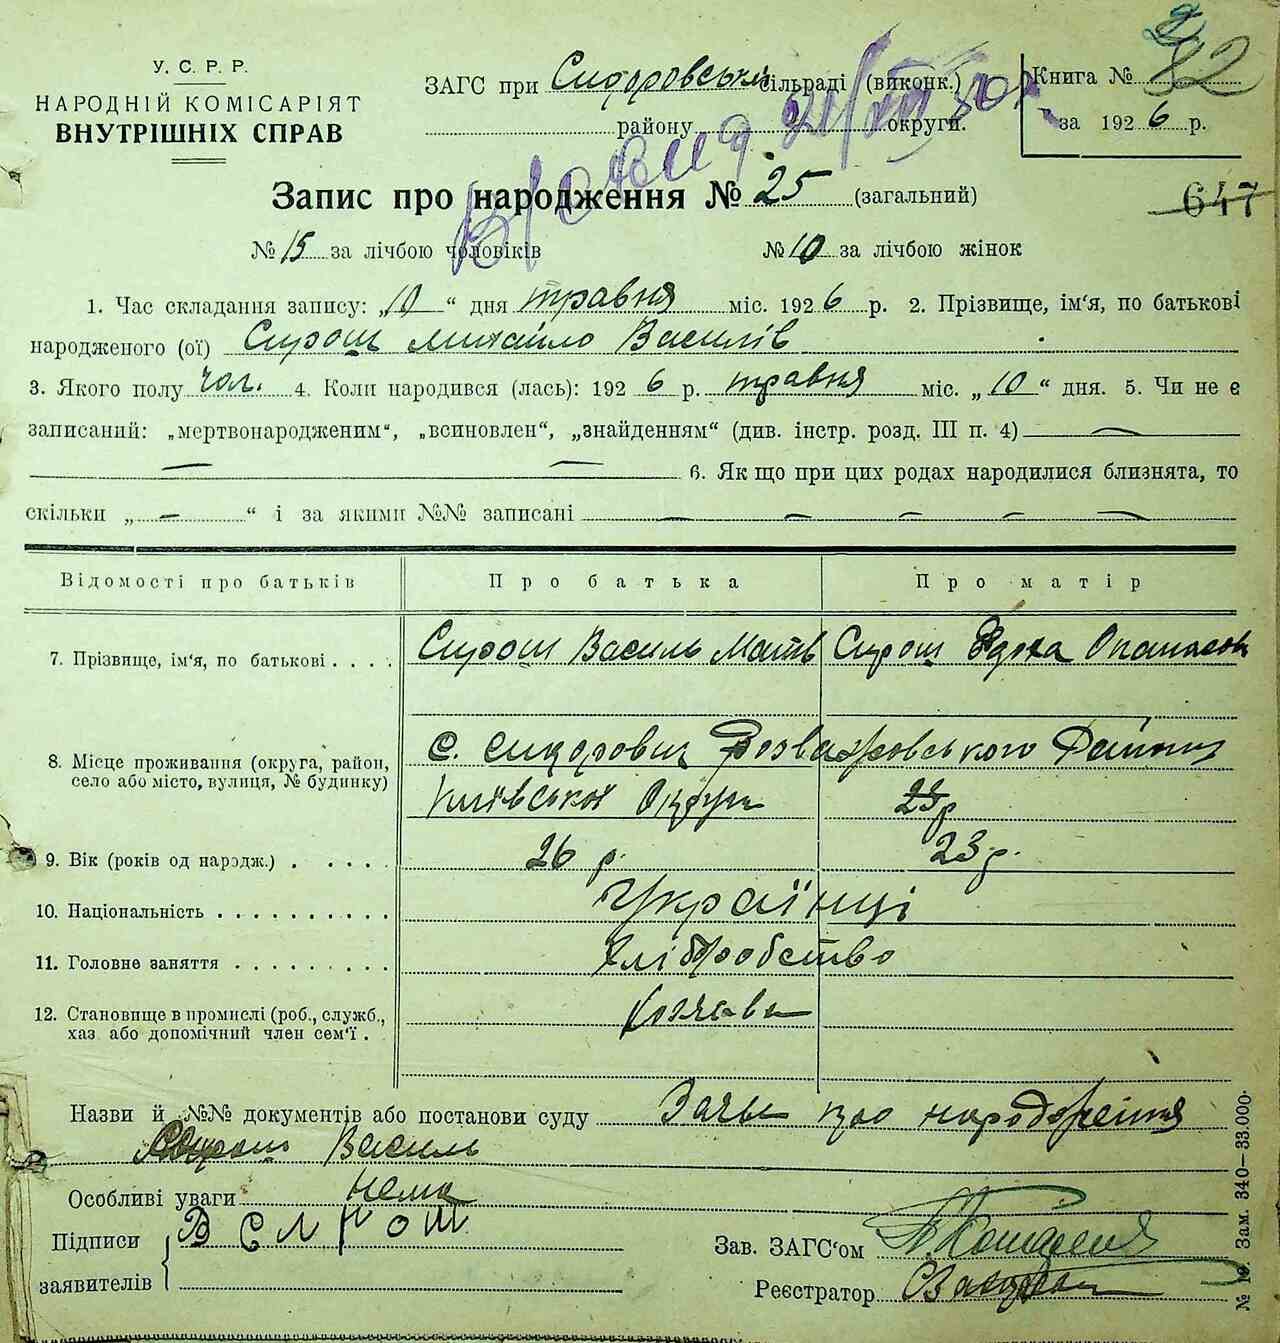 У. С. Р. Р.
НАРОДНІЙ КОМІСАРІЯТ
ВНУТРІШНІХ СПРАВ
ЗАГС при Сидоровськ. сільраді (виконк.)
району округи.
Книга № 12
за 1926 р.
Запис про народження № 25 (загальний)
647
№ 15 за лічбою чоловіків № 10 за лічбою жінок
1. Час складання запису: „10“ дня травня міс. 1926 р. 2. Прізвище, ім'я, по батькові
народженого (ої) Сирош Михайло Василів
3. Якого полу чол. 4. Коли народився (лась): 1926 р. травня міс. „10“ дня. 5. Чи не є
записаний: „мертвонародженим“, „всиновлен“, „знайденням“ (див. інстр. розд. III п. 4) —
— — 6. Як що при цих родах народилися близнята, то
скільки „ — “ і за якими №№ записані — — — — —
Відомості про батьків Про батька Про матір
7. Прізвище, ім'я, по батькові . . . . Сирош Василь Матів Сирош Явдоха Опанасова
8. Місце проживання (округа, район,
село або місто, вулиця, № будинку)
с. Сидорович Розважівського Району
Київської Округи 23 р
9. Вік (років од народж.) . . . . . 26 р. 23 р.
10. Національність . . . . . . . . . . Українці
11. Головне заняття . . . . . . . . . Хліборобство
12. Становище в промислі (роб., служб.,
хаз. або допомічний член сем'ї .
Назви й №№ документів або постанови суду Заява про народження
Сирош Василь
Особливі уваги нема
Підписи
заявителів
В Сирош
Зав. ЗАГС'ом
Реєстратор
№ 10. Зам. 340—33.000.